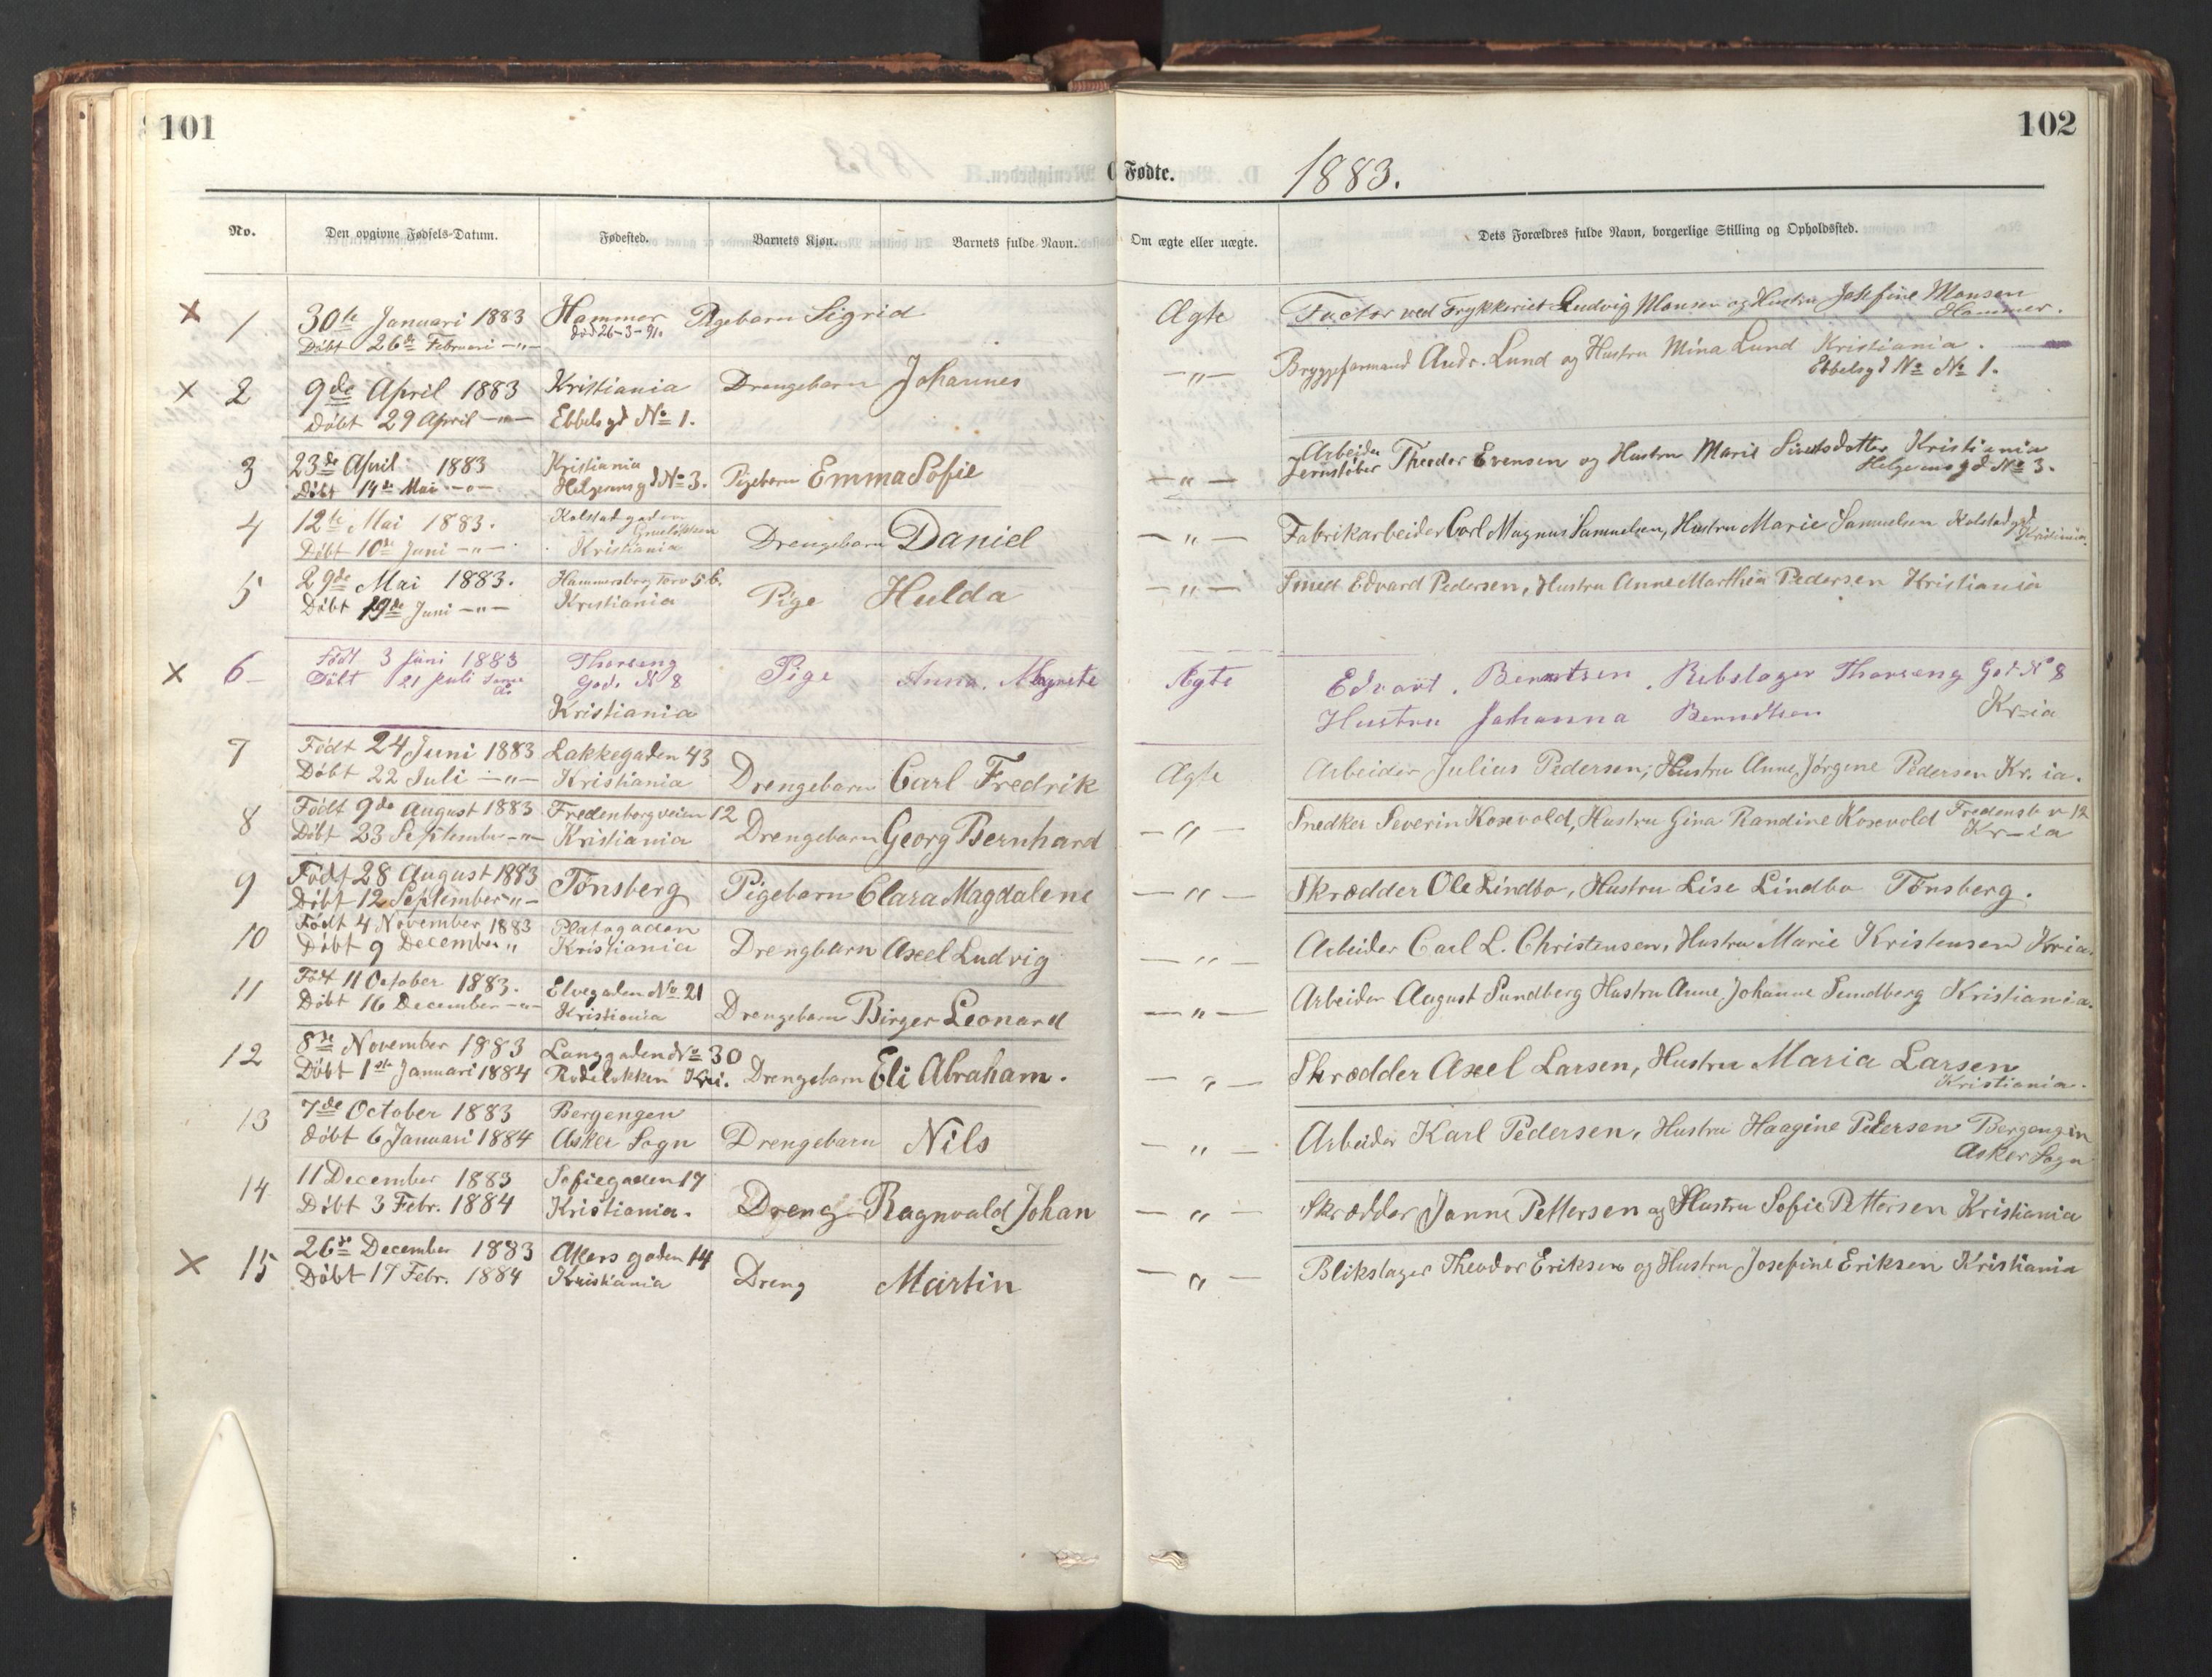 101
102
Fødte.
1883.
No.
Den opgivne Fødsels-Datum.
Fødested.
Barnets Kjøn.
Barnets fulde Navn.
Om ægte eller uægte.
Dets Forældres fulde Navn, borgerlige Stilling og Opholdssted.
× 1 30te Januari 1883 Hammer Pigebarn Sigrid Ægte Factor ved Trykkeriet Ludvig Monsen og Hustru Josefine Monsen
Døbt 26de Februari —„— død 26-3-91. Hammer.
× 2 9de April 1883 Kristiania Drengebarn Johannes —„— Bryggeformand Andr. Lund og Hustru Mina Lund Kristiania.
Døbt 29 April —„— Ebbelsgd No 1. Ebbelsgd No No 1.
3 23de April 1883 Kristiania Pigebarn Emma Sofie —„— Arbeider
Døbt 14de Mai —„— Helgesensgd No 3. Jernstøber Theodor Evensen og Hustru Marie Sivertsdatter Kristiania
Helgesensgd No 3.
4 12te Mai 1883. Kolstadgaden Drengebarn Daniel —„— Fabrikarbeider Carl Magnus Samuelsen, Hustru Marie Samuelsen Kolstadgd
Døbt 10de Juni —„— Kristiania Kristiania.
5 29de Mai 1883. Hammersborg Torv 5 b. Pige Hulda —„— Smed Edvard Pedersen, Hustru Anne Marthea Pedersen Kristiania
Døbt 19de Juni —„— Kristiania
× 6 Født 3 Juni 1883 Thorseng Pige Anna Ægte Edvart. Berntsen. Rebslager Thorseng Gad. N 8
Døbt 21 Juli Gad. N 8 Hustru Johanna Berndtsen Kr-ia
Kristiania
7 Født 24 Juni 1883 Lakkegaden 43 Drengebarn Carl Fredrik Ægte Arbeider Julius Pedersen; Hustru Anne Jørgine Pedersen Kr.ia.
Døbt 22 Juli —„— Kristiania
8 Født 9de August 1883 Fredensborgveien 12 Drengebarn Georg Bernhard —„— Snedker Severin Kosevold, Hustru Gina Randine Kosevold Fredensb v 12
Døbt 23 September —„— Kristiania Kr-ia
9 Født 28 August 1883 Tönsberg Pigebarn Clara Magdalene —„— Skrædder Ole Lindbo, Hustru Lise Lindbo Tönsberg.
Døbt 12 September „—
10 Født 4 November 1883 Platogaden Drengbarn Axel Ludvig —„— Arbeider Carl L. Christensen, Hustru Marie Kristensen Kria.
Døbt 9 December „ Kristiania
11 Født 11 October 1883. Elvegaden No 21 Drengebarn Birger Leonard —„— Arbeider August Sundberg Hustru Anne Johanne Sundberg Kristiania.
Døbt 16 December —„— Kristiania
12 8de November 1883 Langgaden No 30 Drengebarn Eli Abraham. —„— Skrædder Axel Larsen, Hustru Maria Larsen
Døbt 1ste Januari 1884 Rodeløkken Kri. Kristiania.
13 7de October 1883 Bergengen Drengebarn Nils —„— Arbeider Karl Pedersen, Hustru Haagine Pedersen Bergengen
døbt 6 Januari 1884 Asker Sogn Asker Sogn
14 11 December 1883 Sofiegaden 17 Dreng Ragnvald Johan —„— Skrædder Janne Pettersen og Hustru Sofie Pettersen Kristiania
Døbt 3 Febr. 1884 Kristiania.
× 15 26de December 1883 Akersgaden 14 Dreng Martin —„— Blikslager Theodor Eriksen og Hustru Josefine Eriksen Kristiania
Døbt 17 Febr. 1884 Kristiania